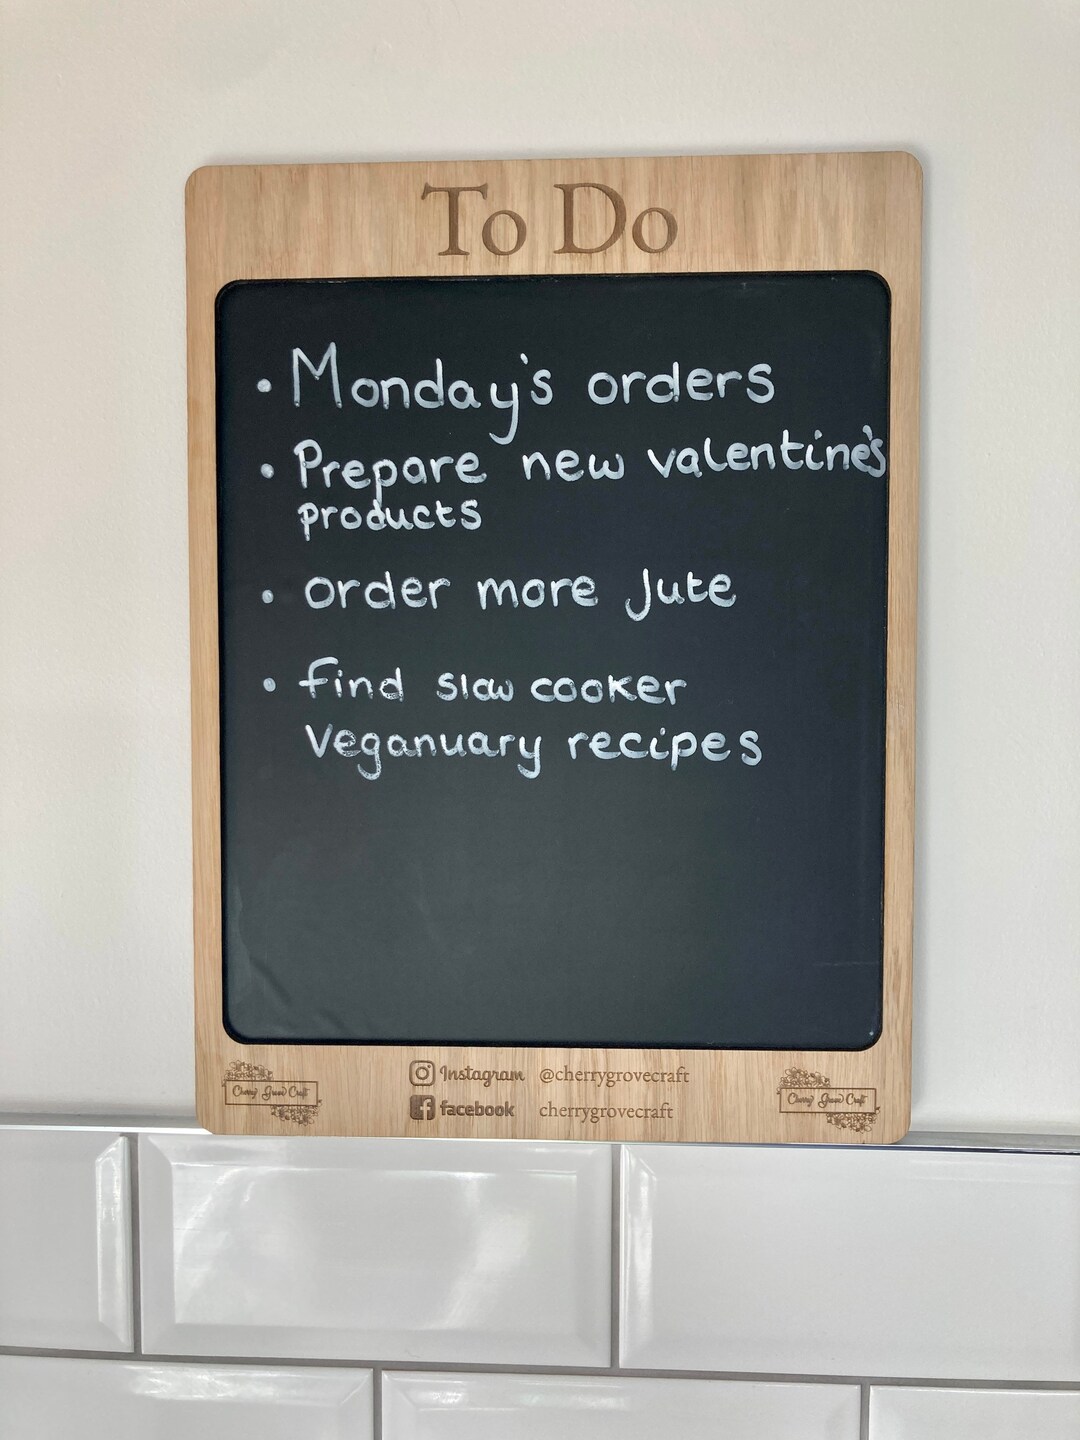 To Do
• Monday's orders
• Prepare new valentine's
products
• order more Jute
• find slow cooker
Veganuary recipes
Cherry Grove Craft
Instagram @cherrygrovecraft
facebook cherrygrovecraft
Cherry Grove Craft